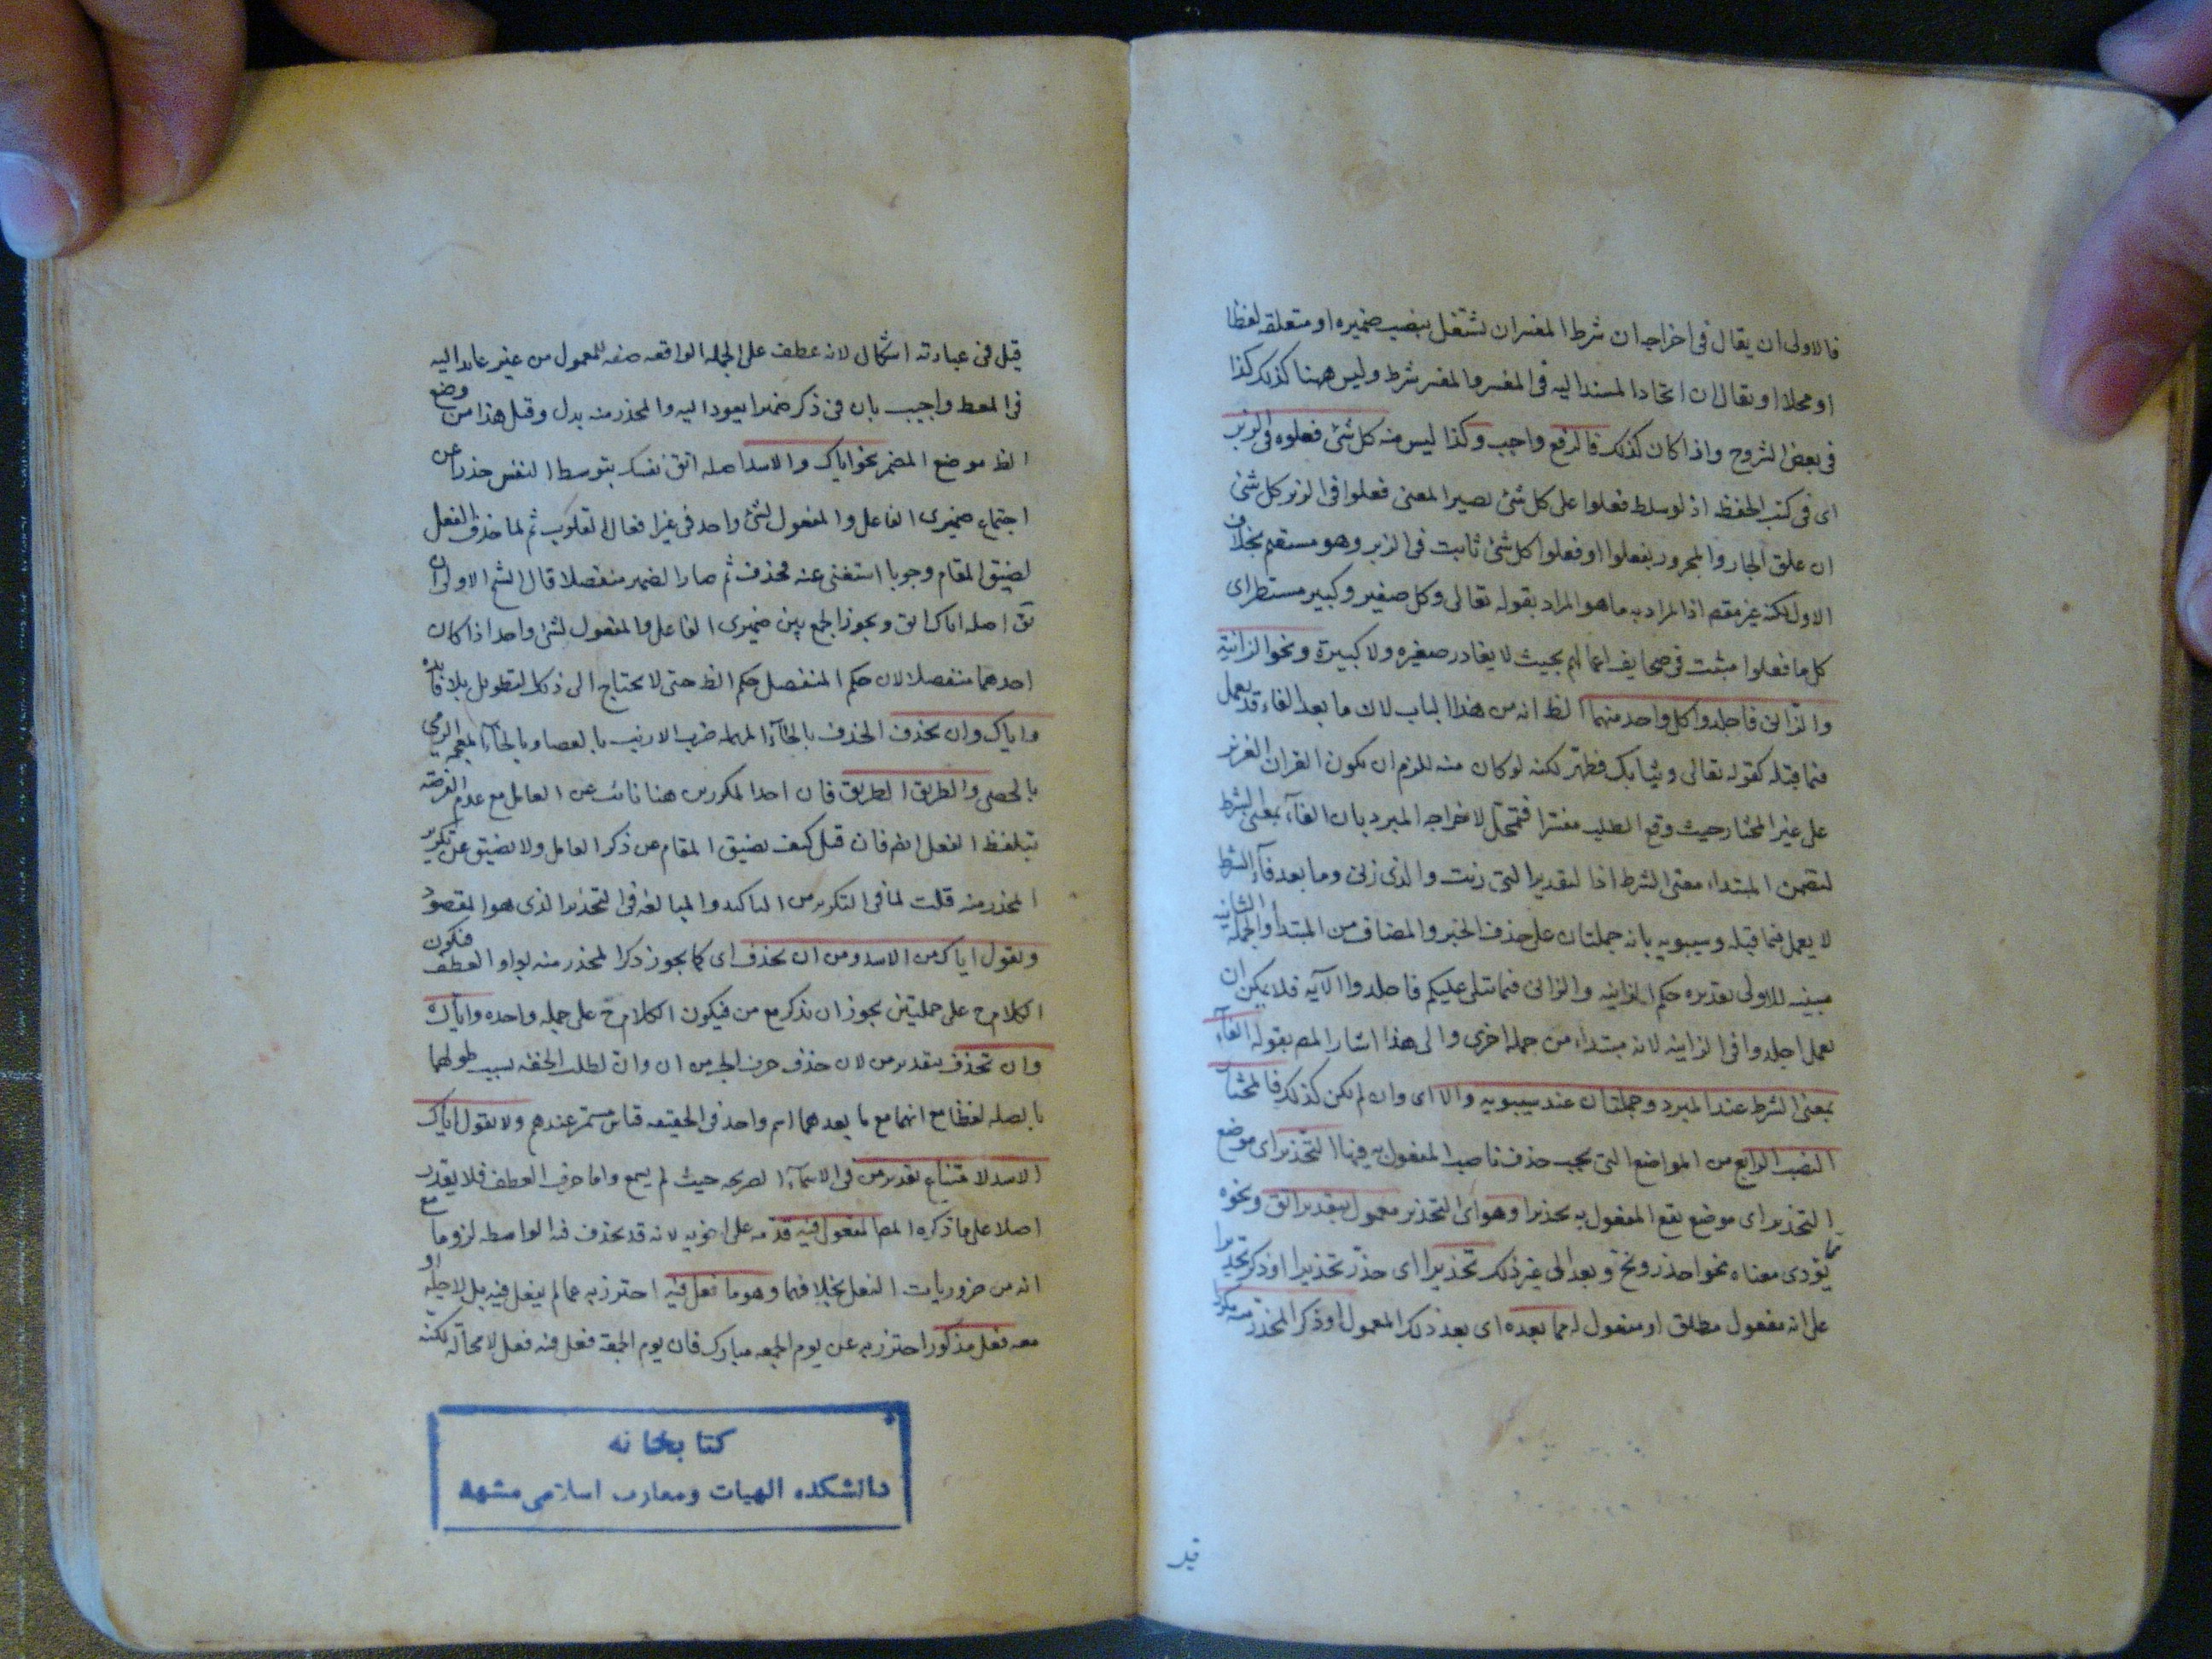 فالاولى ان يقال فى اخراجه ان شرط المفسر ان يشتغل بنصب ضميره او متعلقه لفظا
او محلا او يقال ان اتحاد المسند اليه فى المفسر والمفسر شرط وليس ههنا كذلك كذا
فى بعض الشروح واذا كان كذلك فالرفع واجب وكذا ليس منه كل شئ فعلوه فى الزبر
اى فى كتب الحفظه اذ لو سلط فعلوا على كل شئ يصير المعنى فعلوا فى الزبر كل شئ
ان علق الجار والمجرور بفعلوا او فعلوا كل شئ ثابت فى الزبر وهو مستقيم بخلاف
الاول لكنه غير مقصد اذ المراد به ما هو المراد بقوله تعالى وكل صغير وكبير مستطر اى
كل ما فعلوا مثبت فى صحايف اعمالهم بحيث لا يغادر صغيره ولا كبيرة ونحو الزانية
والزانى فاجلدوا كل واحد منهما الظ انه من هذا الباب لان ما بعد الفاء قد يعمل
فيما قبله كقوله تعالى وثيابك فطهر لكنه لو كان منه للزم ان يكون القران العزيز
على غير المختار حيث وقع الطلب مفسرا فتمحل لاخراجه المبرد بان الفاء بمعنى الشرط
لتضمن المبتداء معنى الشرط اذا لتقدير التى زنت والذى زنى وما بعد فاء الشرط
لا يعمل فيما قبله وسيبويه بانه جملتان على حذف الخبر والمضاف من المبتدأ والجمله الثانيه
مبينه للاولى تقديره حكم الزانيه والزانى فيما يتلى عليكم فاجلدوا الآيه فلا يمكن ان
يعمل اجلدوا فى الزانيه لانه مبتداء من جمله اخرى والى هذا اشار المصه بقوله الفاء
بمعنى الشرط عند المبرد وجملتان عند سيبويه والا اى وان لم يكن كذلك فالمختار
النصب الرابع من المواضع التى يجب حذف ناصب المفعول به فيها التحذير اى موضع
التحذير اى موضع يقع المفعول به تحذيرا وهو اى التحذير معمول بتقدير اتق ونحوه
مما يؤدى معناه نحو احذر ونح وبعد الى غير ذلك تحذيرا اى حذر تحذيرا او ذكر تحذيرا
على انه مفعول مطلق او مفعول له مما بعده اى بعد ذلك المعمول او ذكر المحذر منه مكررا
قيل
قيل فى عبارته اشكال لانه عطف على الجمله الواقعه صفه للمعمول من غير عايد اليه
فى المعط واجيب بان فى ذكر ضميرا يعود اليه والمحذر منه بدل وقيل هذا من وضع
الظ موضع المضمر نحو اياك والاسد اصله اتق نفسك بتوسط النفس حذرا عن
اجتماع ضميرى الفاعل والمفعول لشئ واحد فى غير افعال القلوب ثم لما حذف الفعل
لضيق المقام وجوبا استغنى عنه فحذف ثم صار الضمير منفصلا قال الشم الاولى ان
يق اصله اياك اتق ويجوز الجمع بين ضميرى الفاعل والمفعول لشئ واحد اذا كان
احدهما منفصلا لان حكم المنفصل حكم الظ حتى لا يحتاج الى ذلك التطويل بلا فايده
واياك وان تحذف الحذف بالحاء المهمله ضرب الارنب بالعصا وبالخاء المعجمه الرمى
بالحصى والطريق الطريق فان احد المكررين هنا نائب عن العامل مع عدم الفرصه
بتلفظ الفعل ايضه فان قيل كيف يضيق المقام عن ذكر العامل ولا يضيق عن تكرير
المحذر منه قلت لما فى التكرير من التاكيد والمبالغه فى التحذير الذى هو المقصود
وتقول اياك من الاسد ومن ان تحذف اى كما يجوز ذكر المحذر منه بواو العطف فيكون
الكلام ح على جملتين يجوز ان يذكر مع من فيكون الكلام ح على جمله واحده واياك
وان تحذف بتقدير من لان حذف حرف الجر من ان وان لطلب الخفه بسبب طولهما
بالصله لفظا مع انهما مع ما بعدهما اسم واحد فى الحقيقه قياس مستمر عندهم ولا تقول اياك
الاسد لامتناع تقدير من فى الاسماء الصريحه حيث لم يسمع واما حرف العطف فلا يقدر
اصلا على ما ذكره المصه المفعول فيه قدمه على اخويه لانه قد يحذف فيه الواسطه لزوما مع
انه من ضروريات الفعل بخلافهما وهو ما فعل فيه احترز به عما لم يفعل فيه بل لاجله او
معه فعل مذكور احترز به عن يوم الجمعه مبارك فان يوم الجمعة فعل فيه فعل لا محاله لكنه
كتابخانه
دانشكده الهيات ومعارف اسلامى مشهد